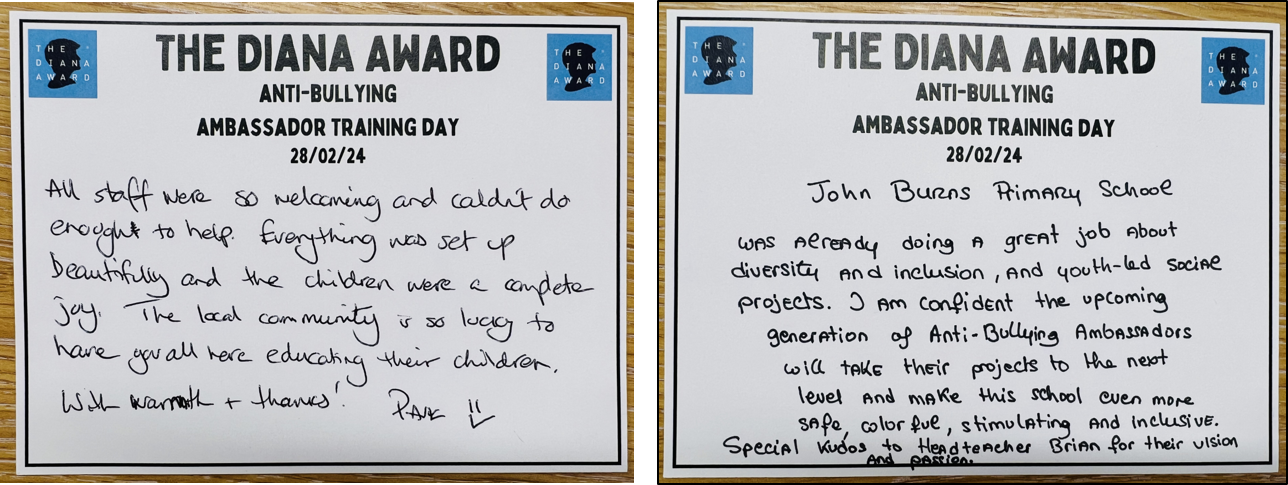 THE DIANA AWARD
THE DIANA AWARD
ANTI-BULLYING
AMBASSADOR TRAINING DAY
28/02/24
THE DIANA AWARD
All staff were so welcoming and couldn't do
enought to help. Everything was set up
beautifully and the children were a complete
joy. The local community is so lucky to
have you all here educating their children.
With warmth + thanks!
THE DIANA AWARD
THE DIANA AWARD
ANTI-BULLYING
AMBASSADOR TRAINING DAY
28/02/24
THE DIANA AWARD
John Burns Primary School
was already doing a great job about
diversity and inclusion, and youth-led social
projects. I am confident the upcoming
generation of Anti-Bullying Ambassadors
will take their projects to the next
level and make this school even more
safe, colorful, stimulating and inclusive.
Special kudos to Headteacher Brian for their vision
and passion.